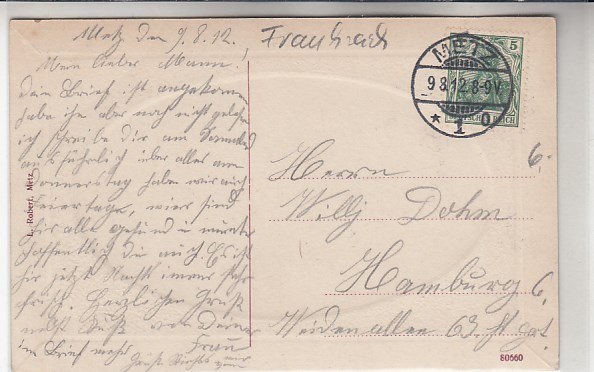 Metz den 9.8.12.
Frau
Mein lieber Mann!
Dein Brief ist angekommen
habe ihn aber noch nicht gelesen
ich schreibe dir am Sonnabend
ausführlich über alles am
Donnerstag haben wir auch
Feiertage, wier sind
hir alle gesund u munter
hoffentlich du auch. Es ist
hir jetzt Nachts immer sehr
frisch. Herzlichen Gruß
nebst Kuß von Deiner
im Brief mehr Frau
METZ
9 8.12.8-9V
* 1 0
5
DEUTSCHES REICH
Herrn
Willy Dohm
Hamburg 6,
Weidenallee 63
6,
L. Robert, Metz.
80660